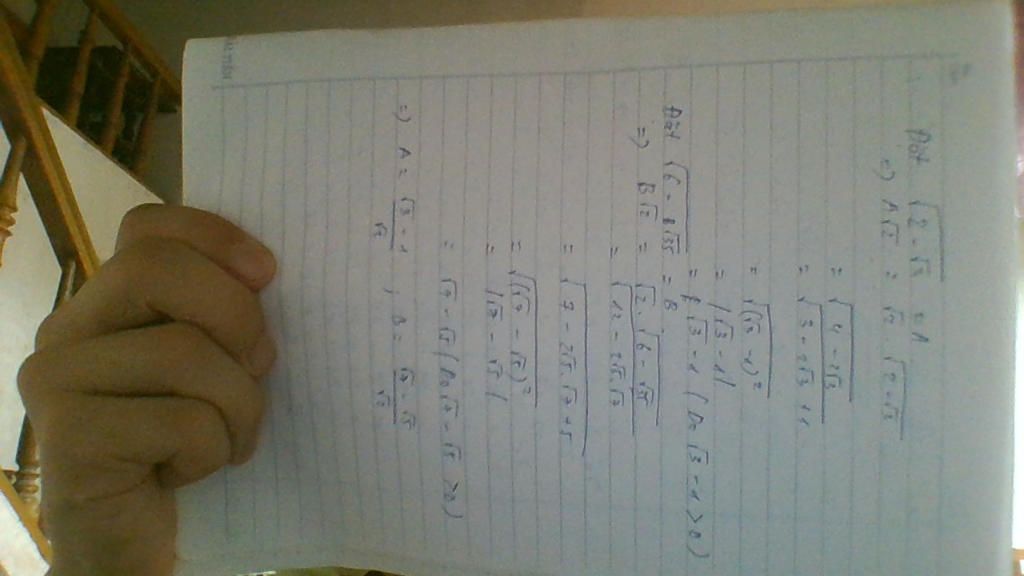 Đặt √(2-√3) = A
=) A√2 = √2 . √(2-√3)
= √(4-2√3)
= √(3-2√3+1)
= √((√3-1)²)
= |√3-1|
= √3-1 (Do √3-1>0)
Đặt √(6-√35) = B
=) B√2 = √2 . √(6-√35)
= √(12-2√5.√7)
= √(7-2√5.√7+5)
= √((√7-√5)²)
= |√7-√5|
= √7-√5 (Do √7-√5 >0)
=) A = (√3-1)/√2 , B = (√7-√5)/√2